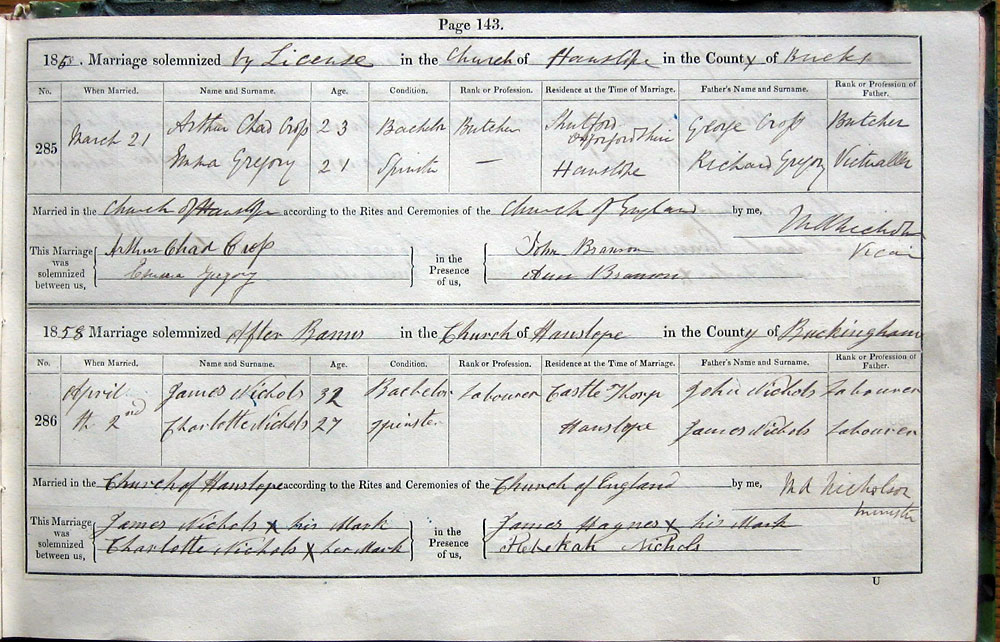 Page 143.
185 . Marriage solemnized by License in the Church of Hanslope in the County of Bucks
No. When Married. Name and Surname. Age. Condition. Rank or Profession. Residence at the Time of Marriage. Father's Name and Surname. Rank or Profession of Father.
285 March 21 Arthur Chad Cross 23 Bachelor Butcher Shutford Oxfordshire George Cross Butcher
Emma Gregory 21 Spinster — Hanslope Richard Gregory Victualler
Married in the Church of Hanslope according to the Rites and Ceremonies of the Church of England by me,
M A Nicholson
Vicar
This Marriage was solemnized between us, { Arthur Chad Cross } in the Presence of us, { John Branson
Emma Gregory Ann Branson
1858 Marriage solemnized After Banns in the Church of Hanslope in the County of Buckingham
No. When Married. Name and Surname. Age. Condition. Rank or Profession. Residence at the Time of Marriage. Father's Name and Surname. Rank or Profession of Father.
286 April James Nichols 32 Bachelor Labourer Castle Thorp John Nichols Labourer
th 2nd Charlotte Nichols 27 Spinster Hanslope James Nichols Labourer
Married in the Church of Hanslope according to the Rites and Ceremonies of the Church of England by me, M A Nicholson
Minister
This Marriage was solemnized between us, { James Nichols X his Mark } in the Presence of us, { James Hagner X his Mark
Charlotte Nichols X her Mark Rebekah Nichols
U